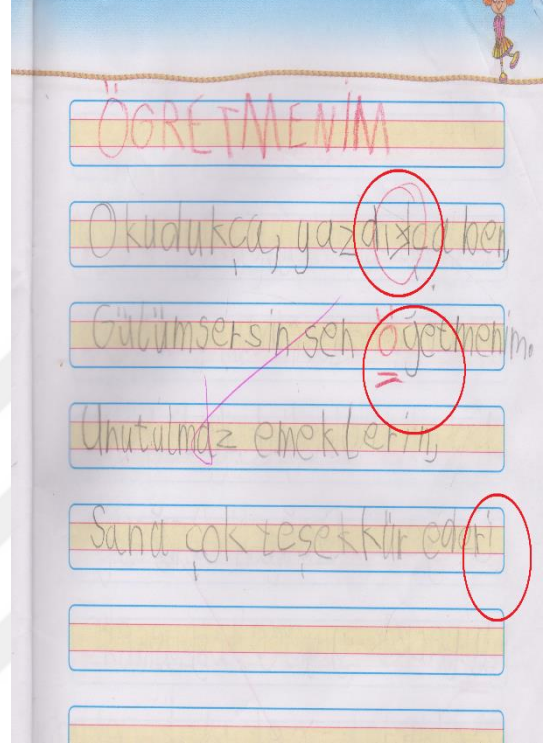 ÖGRETMENİM
Okudukça, yazdıkça ben,
Gülümsersin sen Öğetmenim.
Unutulmaz emeklerin,
Sana çok teşekkür ederi